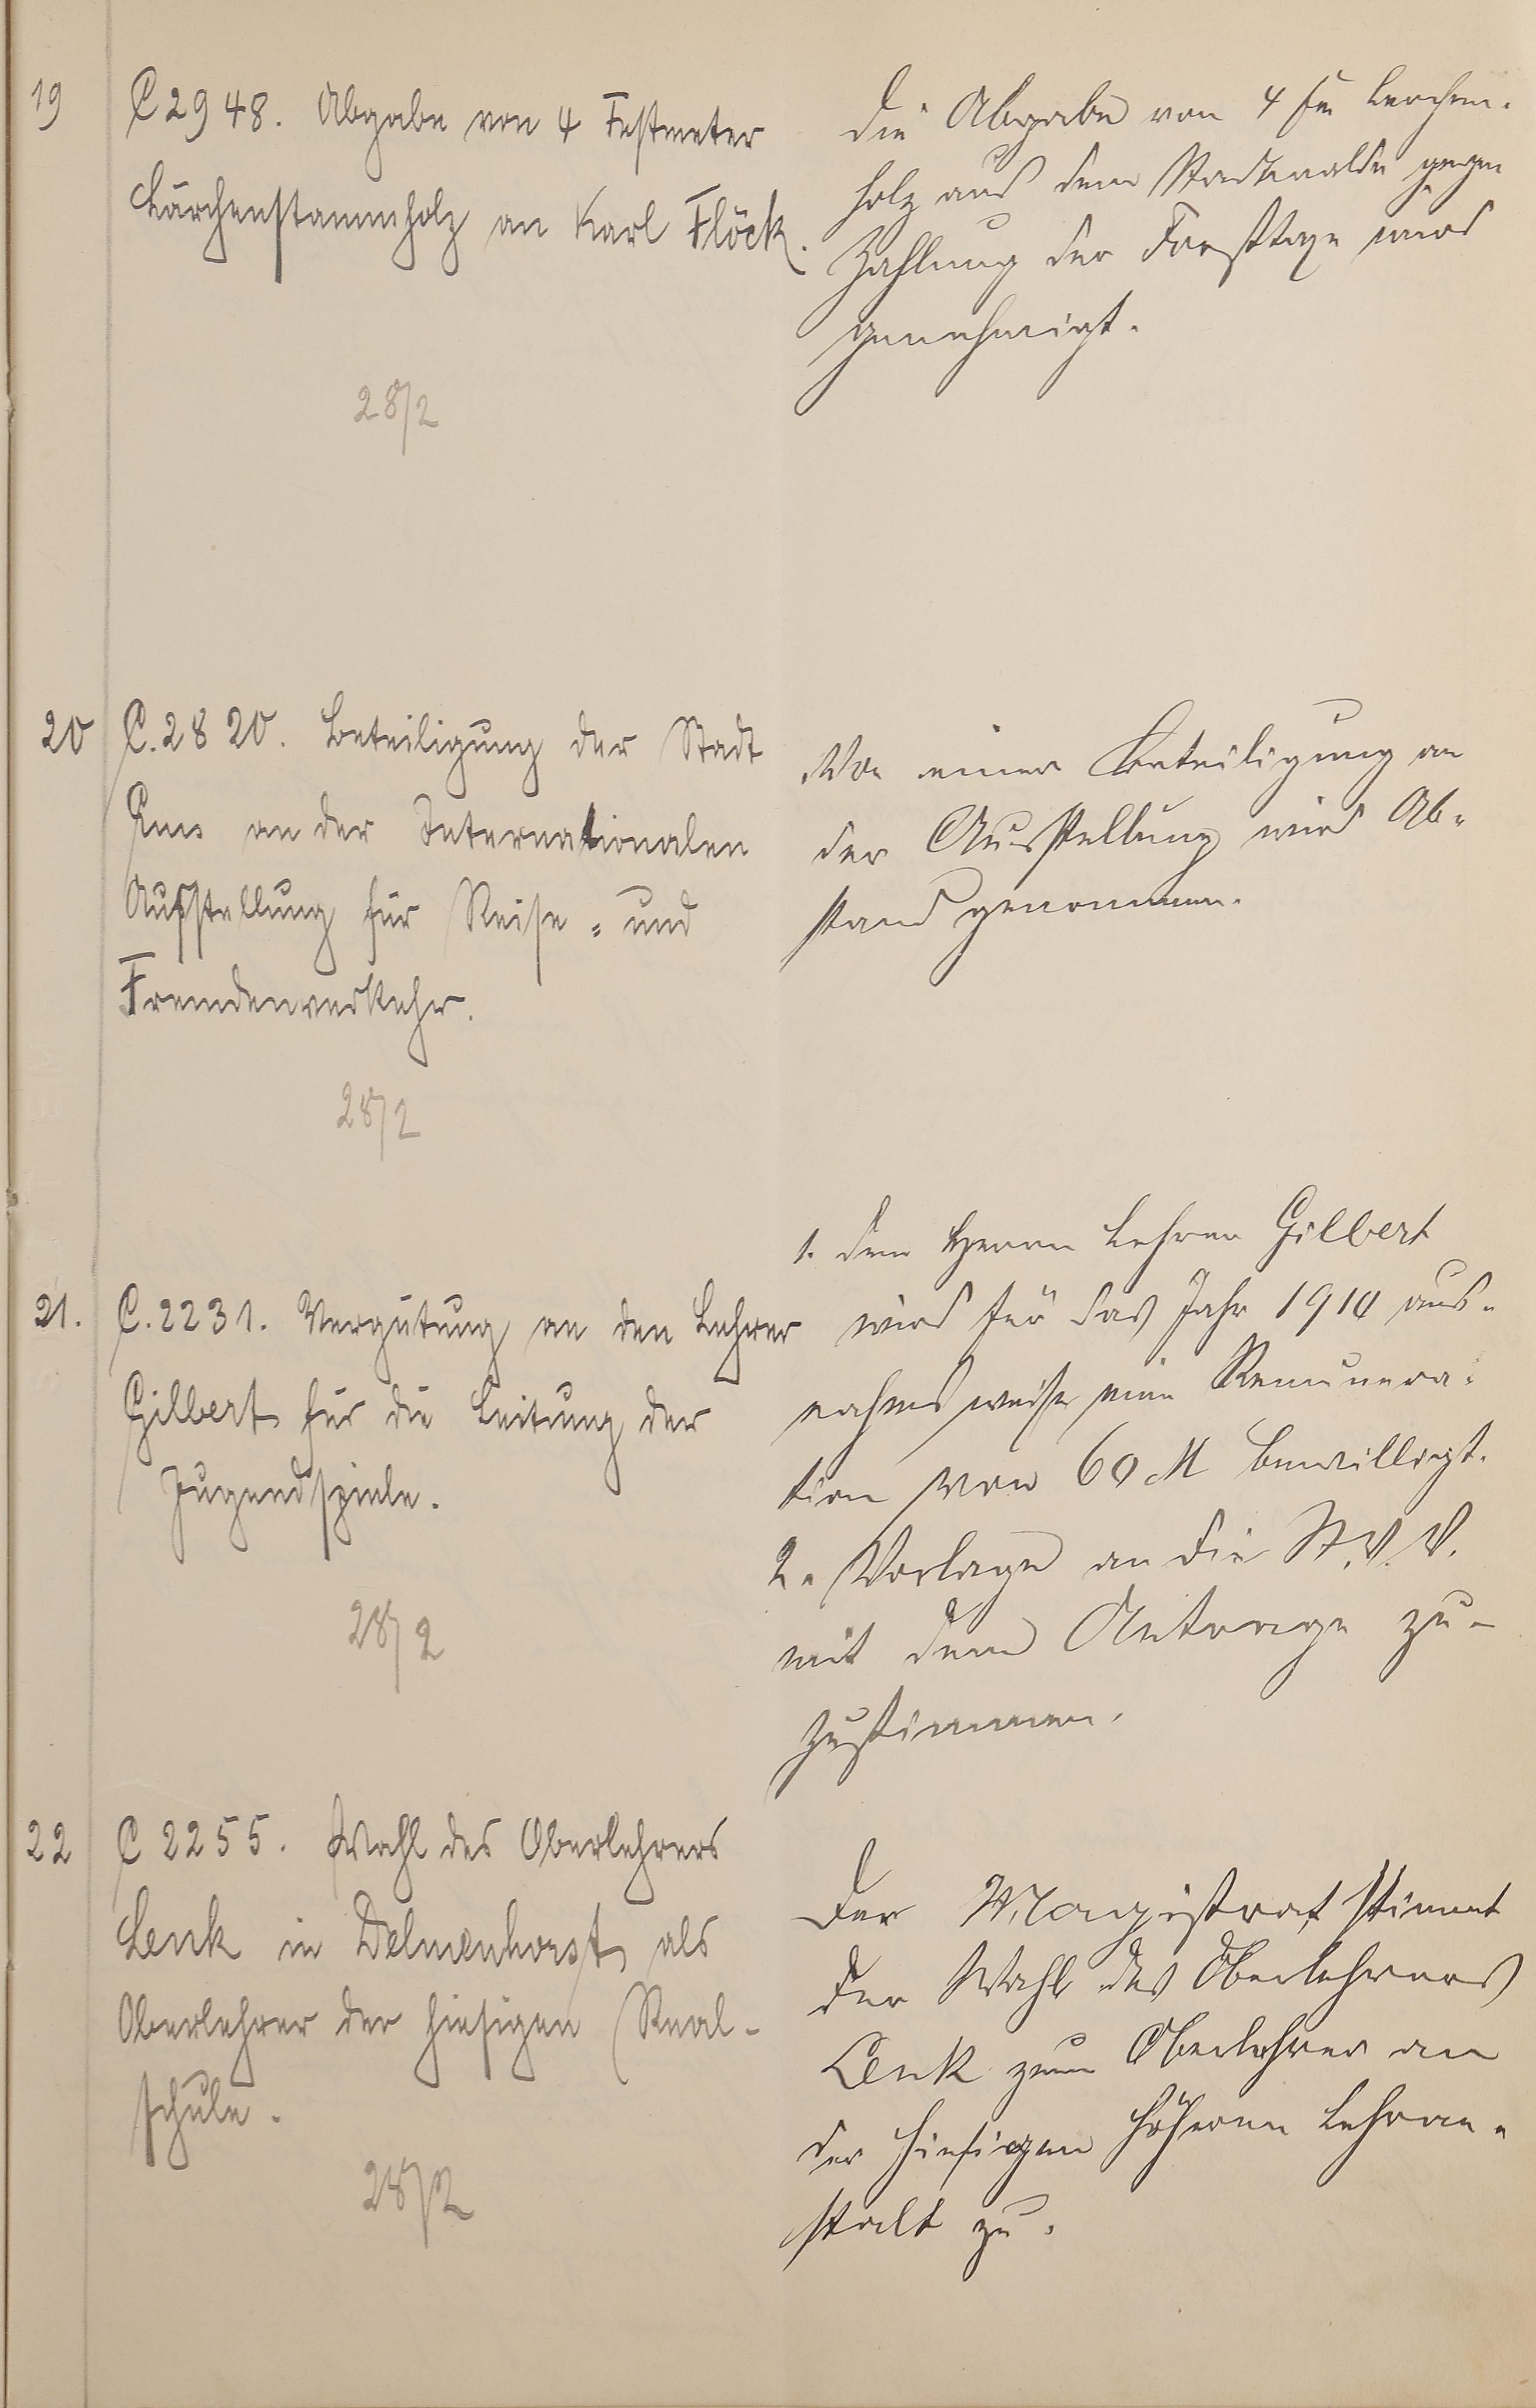 19
C 2948. Abgabe von 4 Festmeter
Lärchenstammholz an Karl Flöck.
28/2
Die Abgabe von 4 fm Lerchen-
holz aus dem Stadtwalde gegen
Zahlung der Forsttaxe wird
genehmigt.
20
C. 2820. Beteiligung der Stadt
Ems an der Internationalen
Ausstellung für Reise- und
Fremdenverkehr.
28/2
Von einer Beteiligung an
der Ausstellung wird Ab-
stand genommen.
21.
C. 2231. Vergütung an den Lehrer
Gilbert für die Leitung der
Jugendspiele.
28/2
1. Dem Herrn Lehrer Gilbert
wird für das Jahr 1910 aus-
nahmsweise eine Remunera-
tion von 60 M bewilligt.
2. Vorlage an die St. V. V.
mit dem Antrage zu-
zustimmen.
22
C 2255. Wahl des Oberlehrers
Lenk in Delmenhorst als
Oberlehrer der hiesigen Real-
schule.
28/2
Der Magistrat stimmt
der Wahl des Oberlehrers
Lenk zum Oberlehrer an
der hiesigen höheren Lehran-
stalt zu.